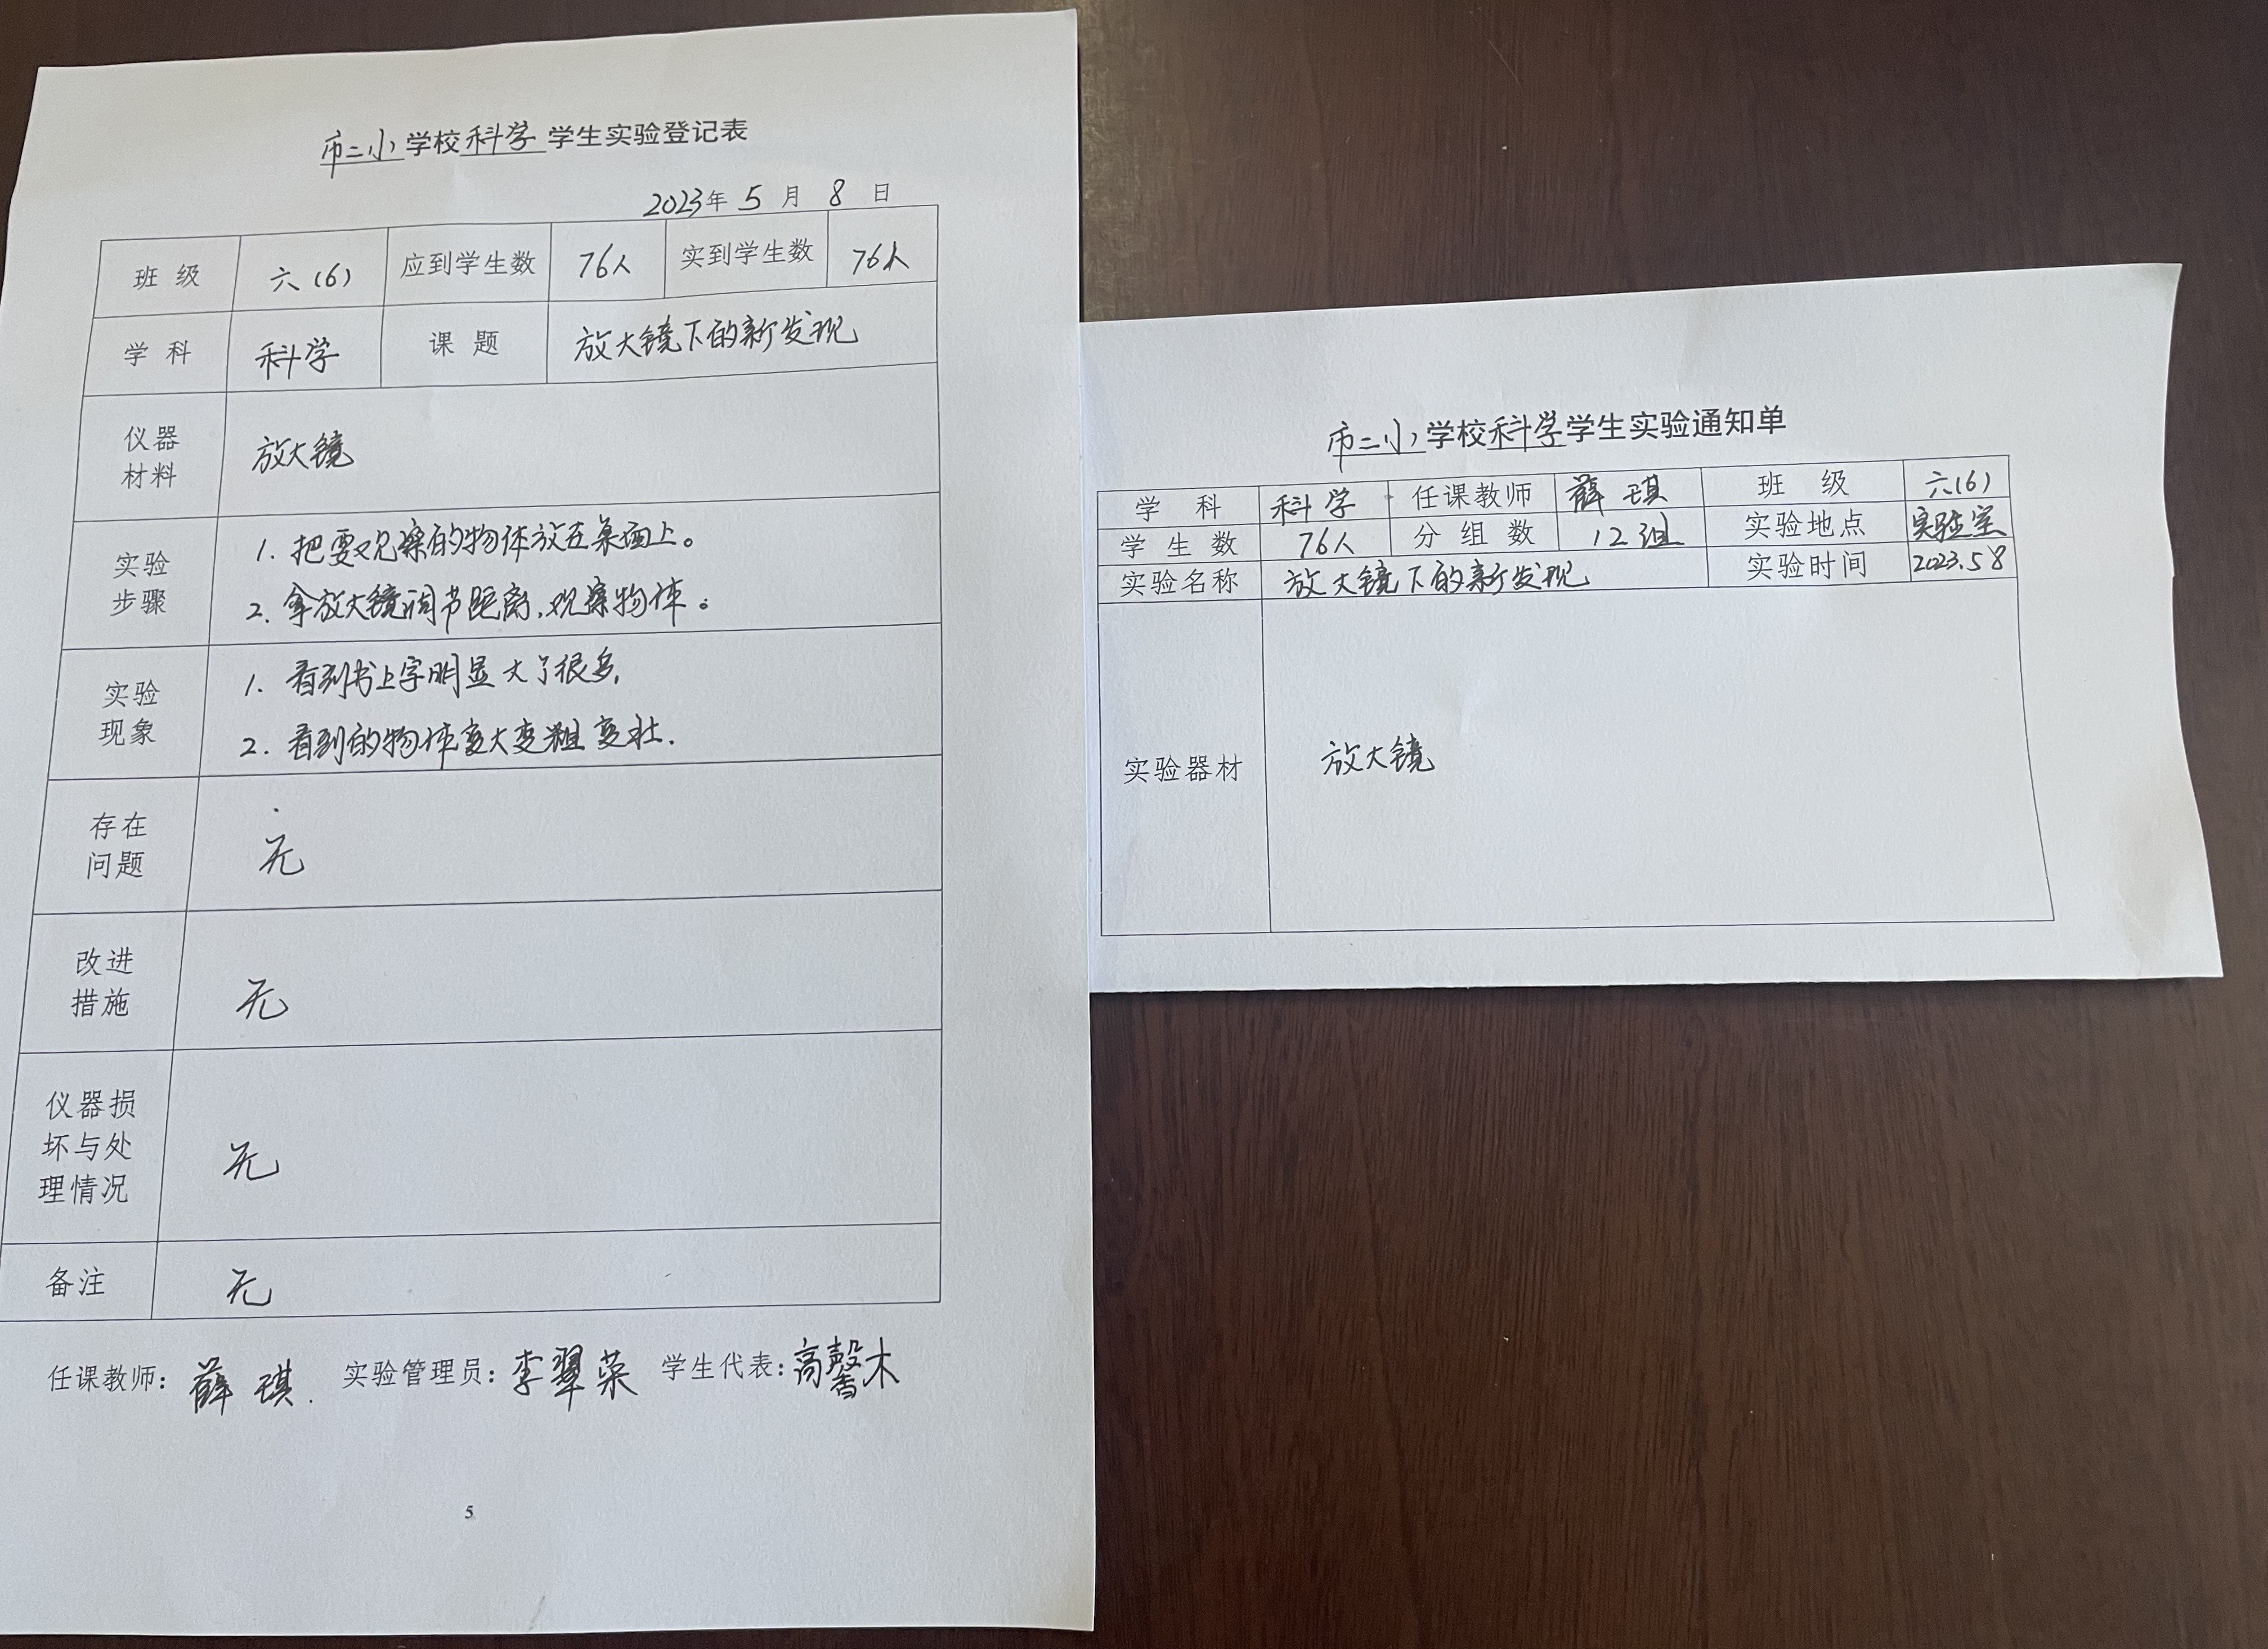 市二小学校科学学生实验登记表
2023年 5 月 8 日
班 级 六(6) 应到学生数 76人 实到学生数 76人
学 科 科学 课 题 放大镜下的新发现
仪器
材料
放大镜
实验
步骤
1. 把要观察的物体放在桌面上。
2. 拿放大镜调节距离,观察物体。
实验
现象
1. 看到书上字明显大了很多,
2. 看到的物体变大变粗变壮.
存在
问题
无
改进
措施
无
仪器损
坏与处
理情况
无
备注 无
任课教师: 薛琪. 实验管理员: 李翠荣 学生代表: 高馨木
5
市二小学校科学学生实验通知单
学 科 科学 任课教师 薛琪 班 级 六(6)
学 生 数 76人 分 组 数 12组 实验地点 实验室
实验名称 放大镜下的新发现 实验时间 2023.5 8
实验器材 放大镜